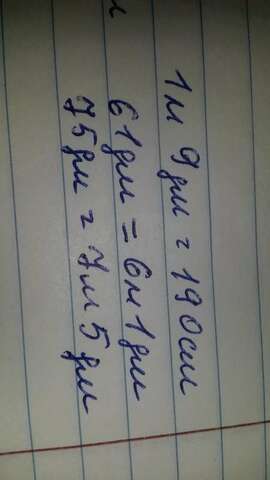 1м 9 дм = 190см
61дм = 6м 1дм
75дм = 7м 5 дм